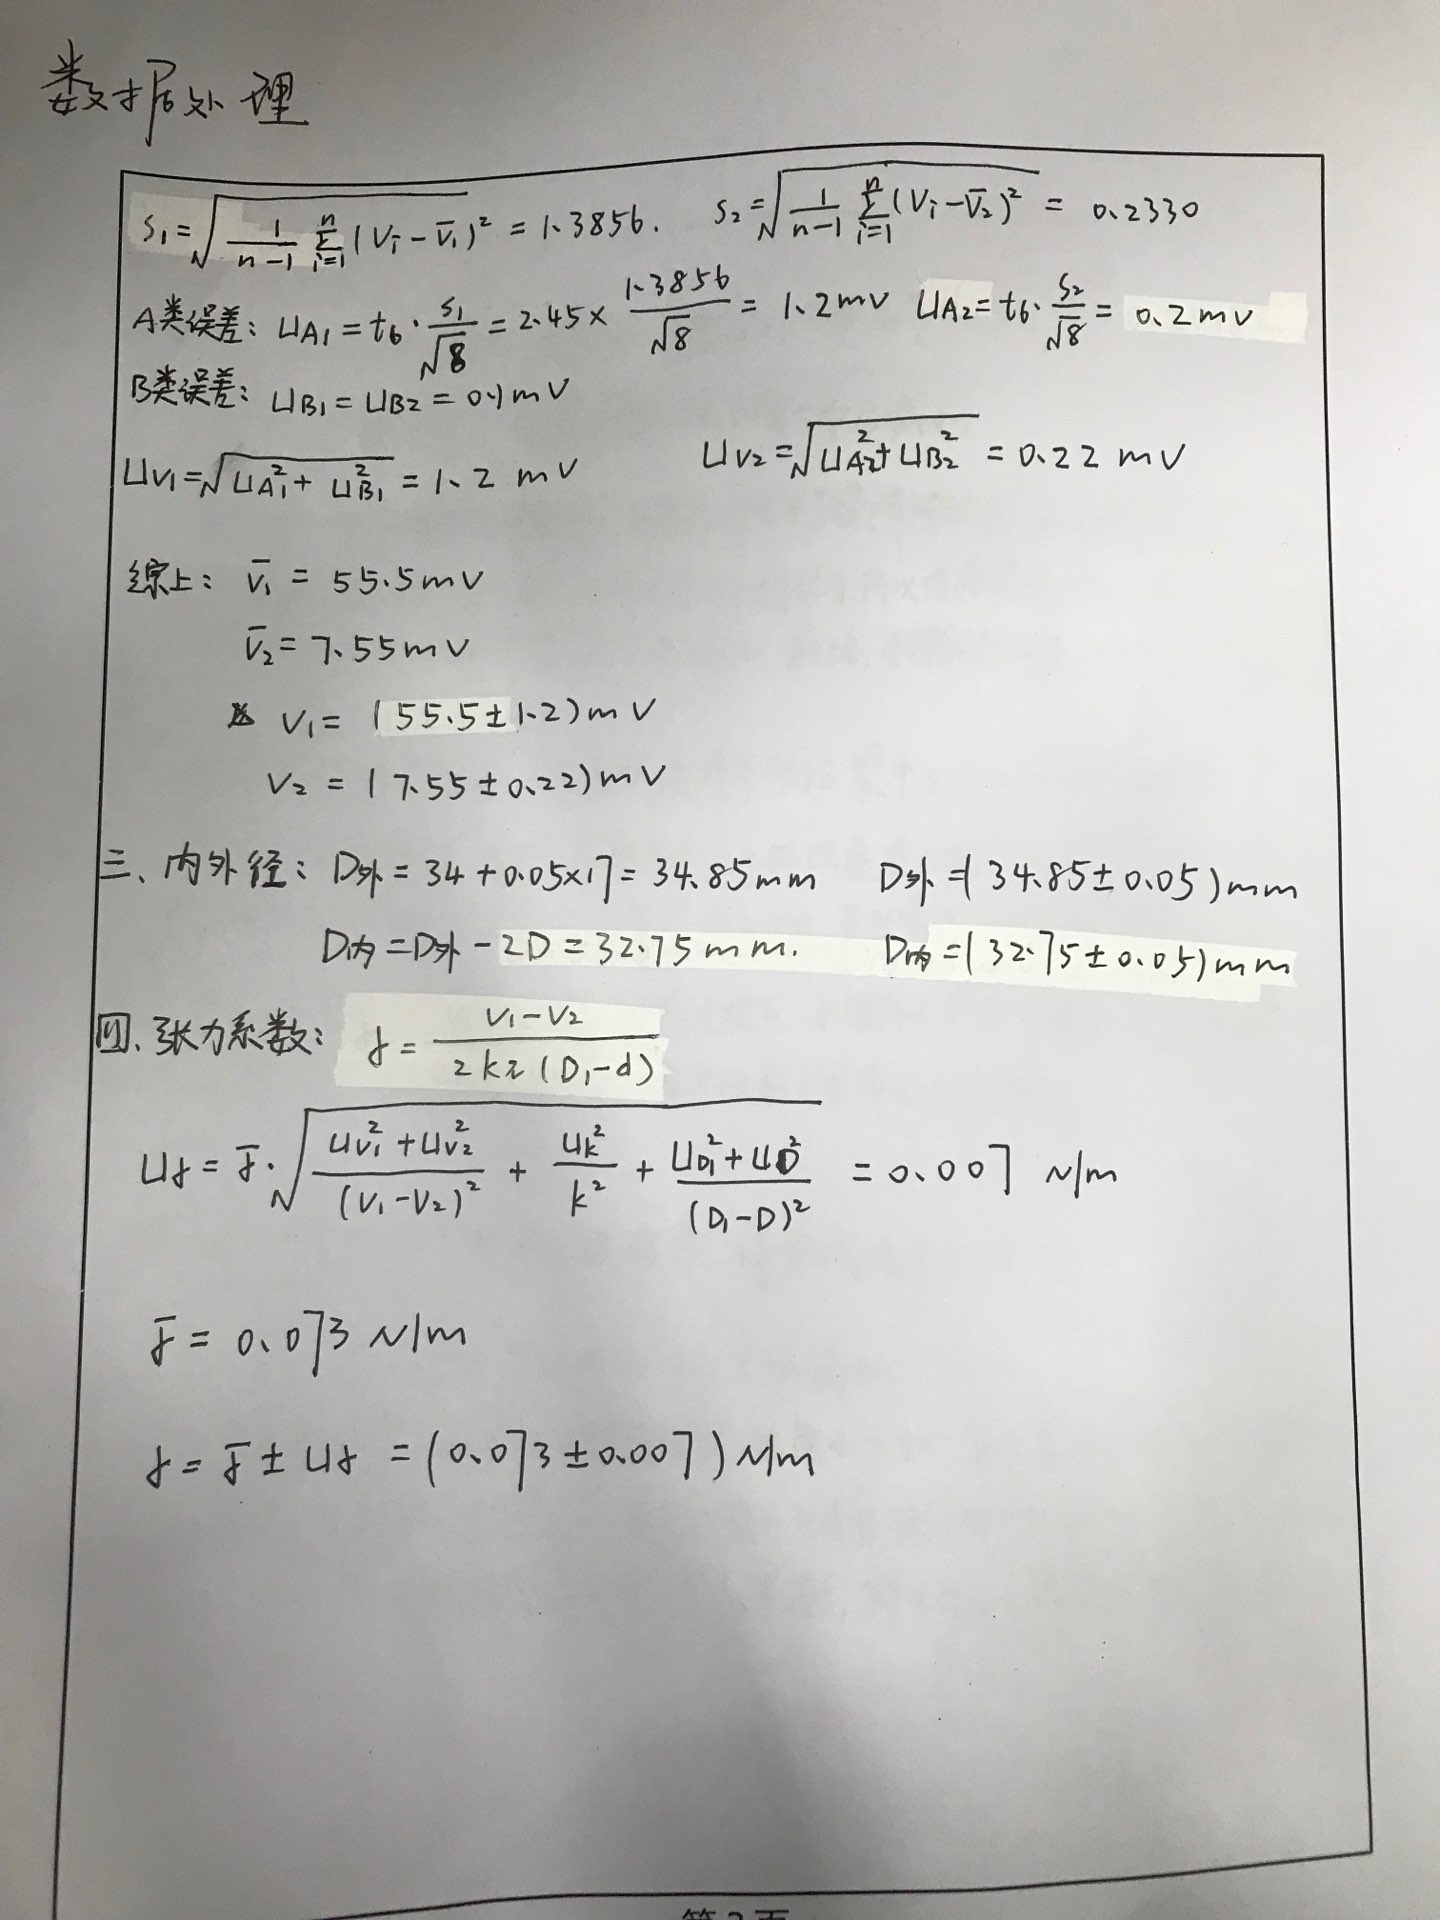 数据处理
S₁=√(1/(n-1) Σⁿᵢ₌₁(Vᵢ-V̄₁)²) = 1.3856. S₂=√(1/(n-1) Σⁿᵢ₌₁(Vᵢ-V̄₂)²) = 0.2330
A类误差: UA₁ = t₆·S₁/√8 = 2.45×1.3856/√8 = 1.2mV UA₂= t₆·S₂/√8 = 0.2mV
B类误差: UB₁ = UB₂ = 0.1mV
UV₁=√(UA₁²+UB₁²) = 1.2 mV UV₂=√(UA₂²+UB₂²) = 0.22 mV
综上: V̄₁ = 55.5mV
V̄₂= 7.55mV
V₁= (55.5±1.2)mV
V₂ = (7.55±0.22)mV
三、内外径: D外 = 34+0.05×17= 34.85mm D外=(34.85±0.05)mm
D内=D外-2D=32.75mm. D内=(32.75±0.05)mm
四、张力系数: γ = (V₁-V₂)/(2kπ(D₁-d))
Uγ = γ̄·√((UV₁²+UV₂²)/(V₁-V₂)² + Uk²/k² + (UD₁²+UD²)/(D₁-D)²) = 0.007 N/m
γ̄ = 0.073 N/m
γ = γ̄ ± Uγ = (0.073±0.007)N/m